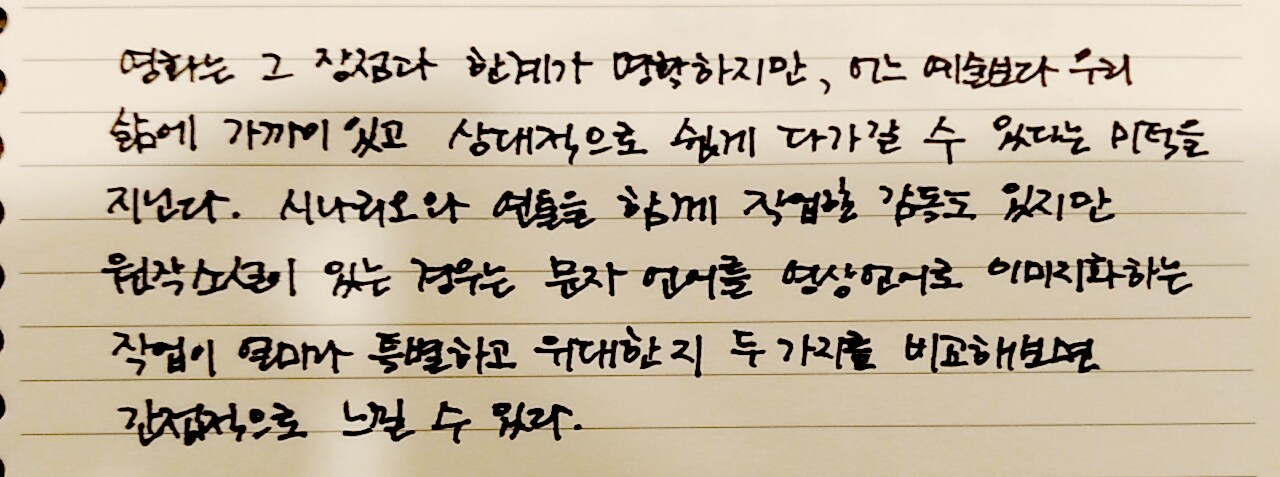 영화는 그 장점과 한계가 명확하지만, 어느 예술보다 우리
삶에 가까이 있고 상대적으로 쉽게 다가갈 수 있다는 미덕을
지닌다. 시나리오와 연출을 함께 작업할 감독도 있지만
원작소설이 있는 경우는 문자 언어를 영상언어로 이미지화하는
작업이 얼마나 특별하고 위대한지 두 가지를 비교해보면
간접적으로 느낄 수 있다.